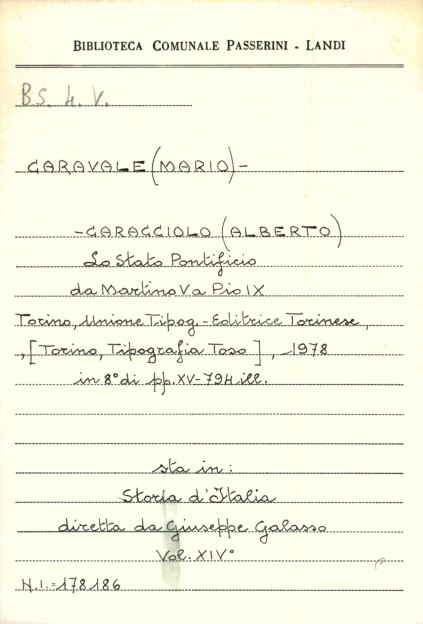 BIBLIOTECA COMUNALE PASSERINI - LANDI
B.S. 4. V.
CARAVALE (MARIO) -
- CARACCIOLO (ALBERTO)
Lo Stato Pontificio
da Martino V a Pio IX
Torino, Unione Tipog.-Editrice Torinese,
, [Torino, Tipografia Toso], 1978
in 8° di pp. XV-794 ill.
sta in:
Storia d'Italia
diretta da Giuseppe Galasso
Vol. XIV°
N.I. = 178186